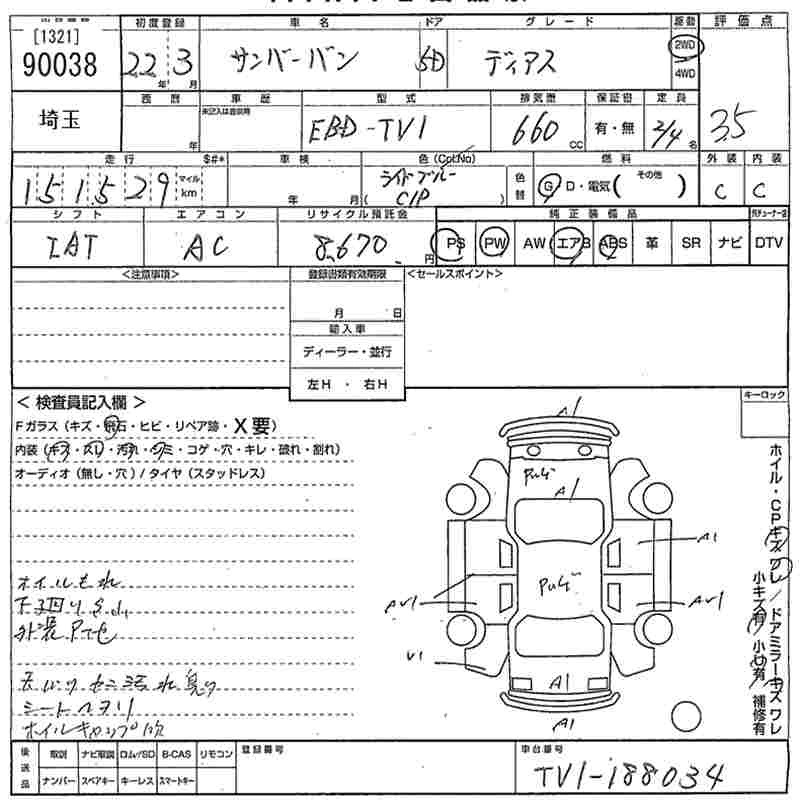 [1321]
90038
初度登録
車名
ドア
グレード
駆動
評価点
22年 3月
サンバーバン
5D
ディアス
2WD
4WD
3.5
埼玉
西暦
年
車歴
未記入は自家用
型式
EBD-TV1
排気量
660 CC
保証書
有・無
定員
2/4名
走行
$#*
151529
マイル
km
車検
年 月
色(Col No)
ライトブルー
C1P
色替
燃料
G D・電気( その他 )
外装
C
内装
C
シフト
IAT
エアコン
AC
リサイクル預託金
8,670 円
純正装備品
PS PW AW エアB ABS 革 SR ナビ DTV
<注意事項>
登録書類有効期限
月 日
輸入車
ディーラー・並行
左H ・ 右H
<セールスポイント>
キーロック
< 検査員記入欄 >
Fガラス(キズ・飛石・ヒビ・リペア跡・X要)
内装(キズ・スレ・汚れ・シミ・コゲ・穴・キレ・破れ・割れ)
オーディオ(無し・穴)/タイヤ(スタッドレス)
オイルもれ
下廻りS.d.
A1
A1
A1
AU1
AU1
U1
A1
A1
シートヘタリ
ホイルキャップ欠
ホイル・CPキズワレ/ドアミラーキズワレ
小キズ有/小凹有/補修有
後送品
取説 ナビ取説 ロム/SD B-CAS リモコン
ナンバー スペアキー キーレス スマートキー
登録番号
車台番号
TV1-188034